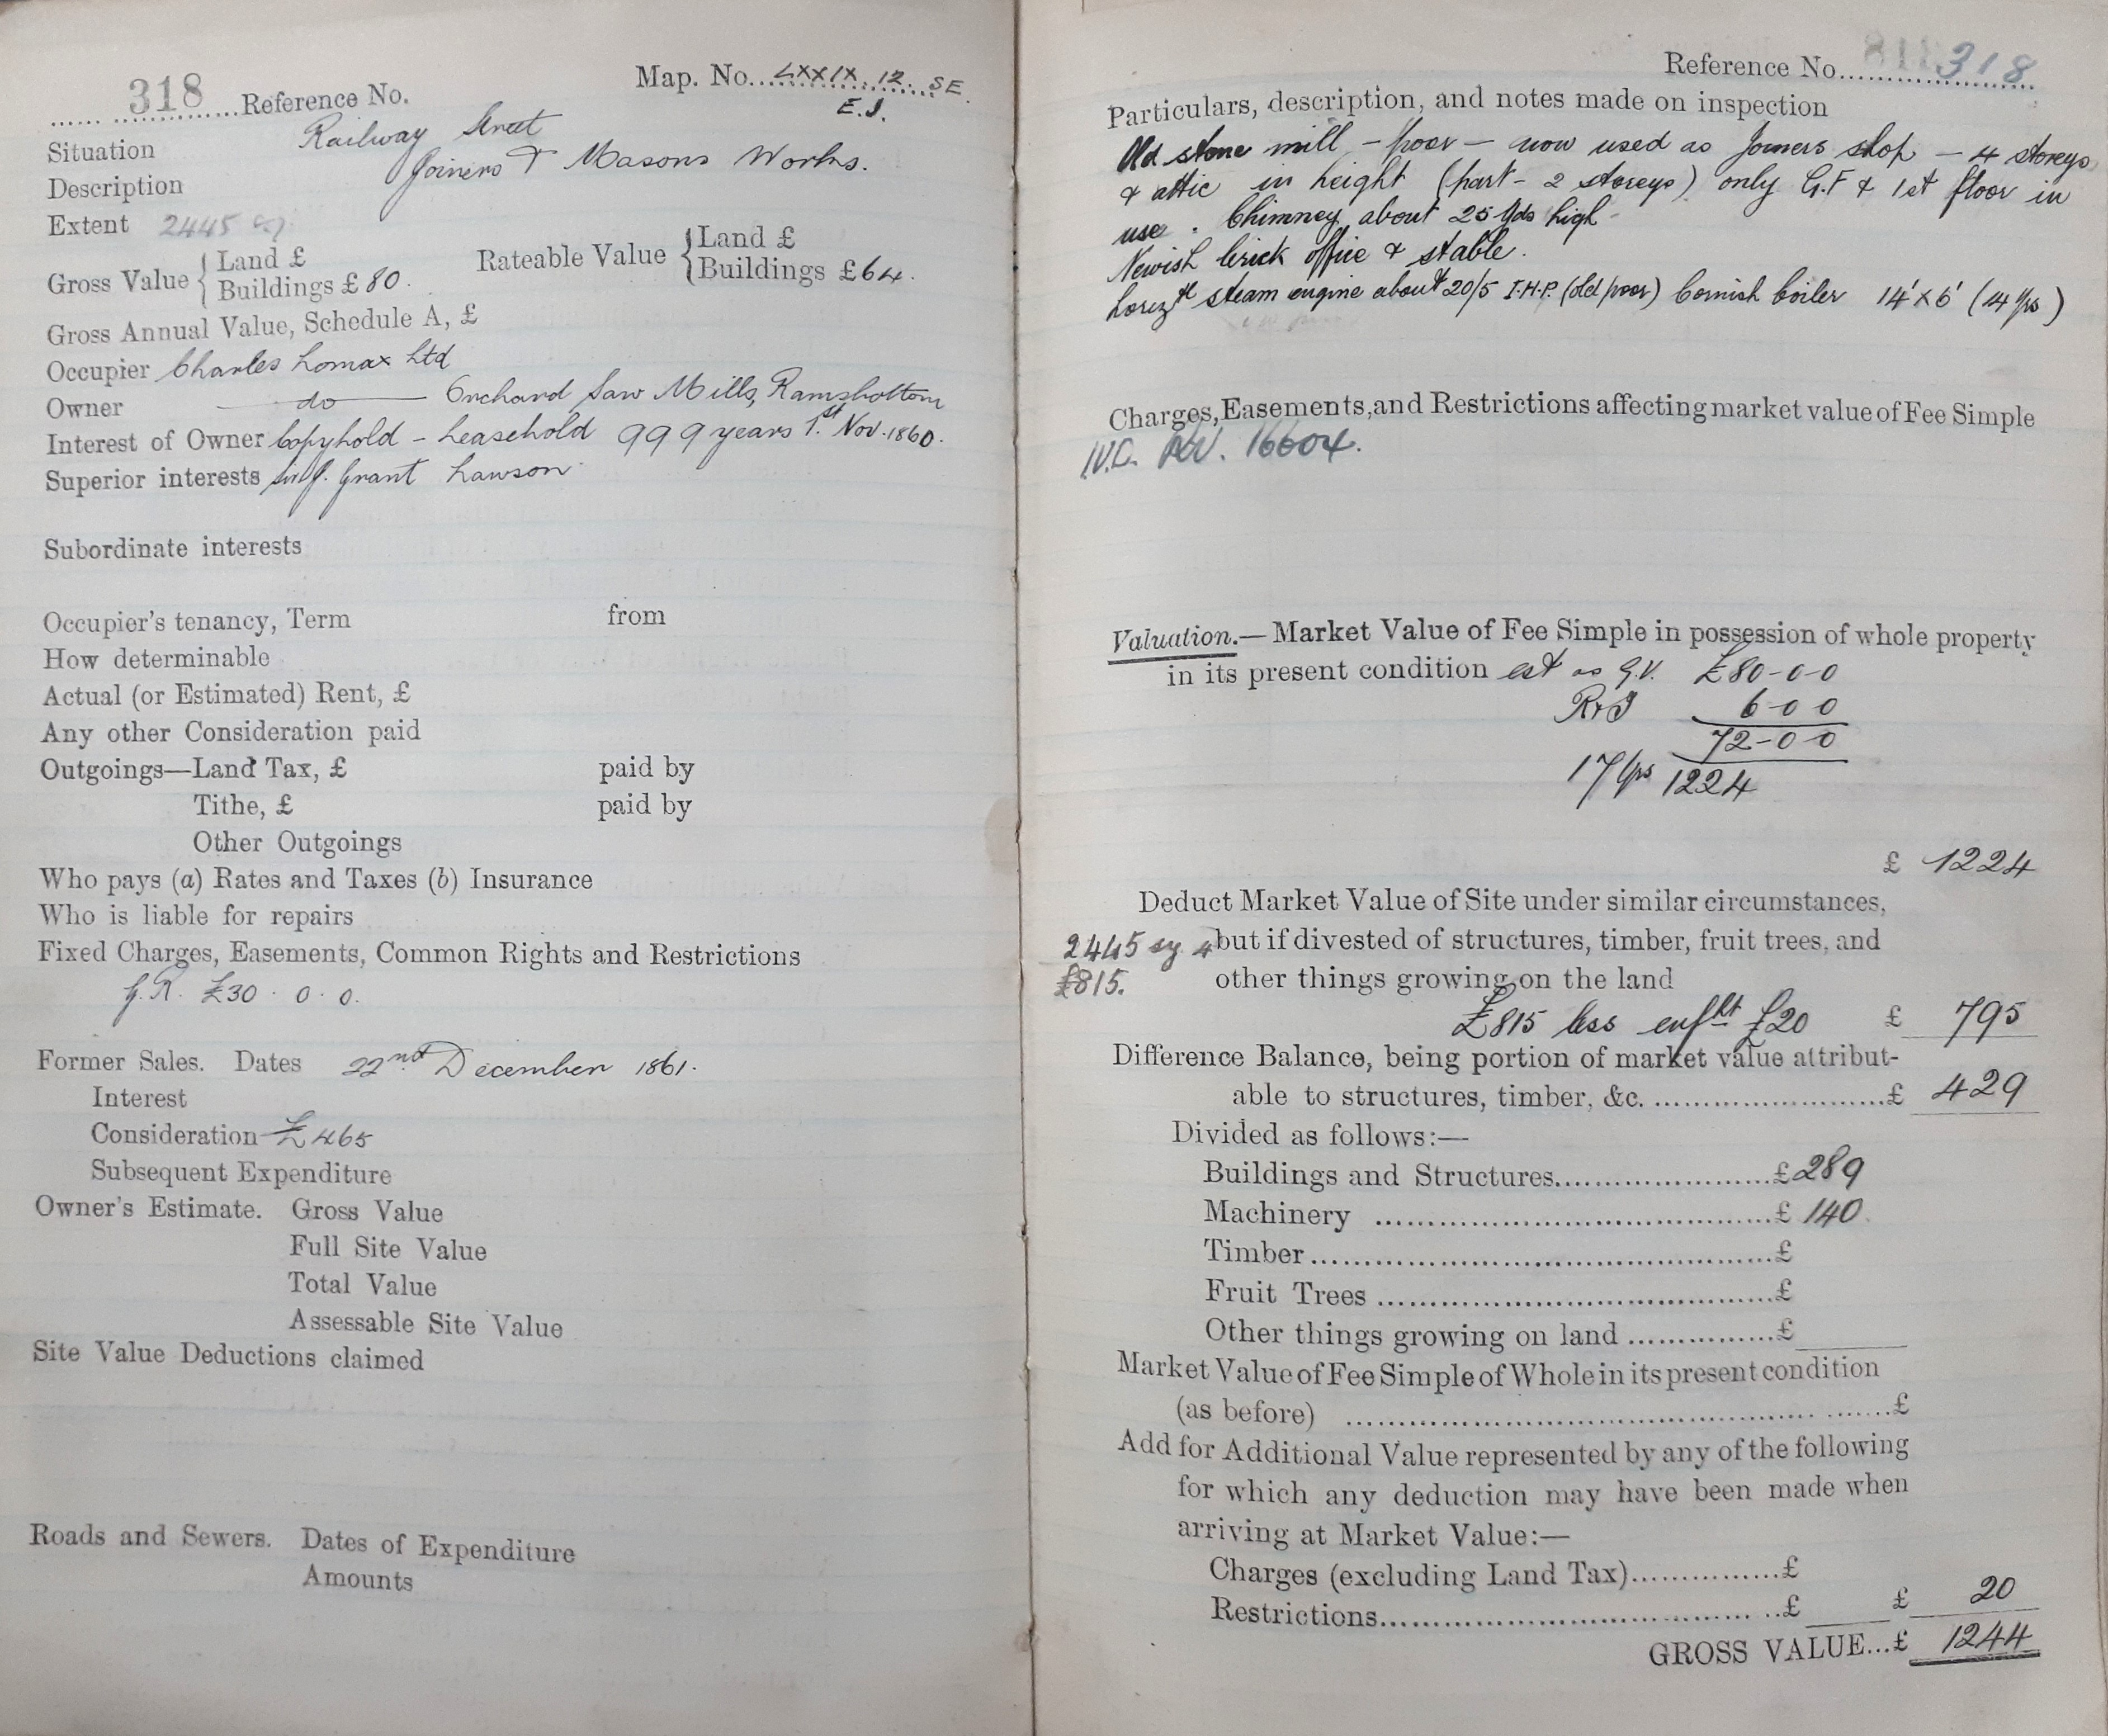 318 Reference No.
Map. No. LXXIX. 12. SE.
E.J.
Situation Railway Street
Description Joiners & Masons Works.
Extent 2445 sq
Gross Value { Land £
Buildings £ 80.
Rateable Value { Land £
Buildings £64.
Gross Annual Value, Schedule A, £
Occupier Charles Lomax Ltd
Owner do Orchard Saw Mills, Ramsbottom
Interest of Owner Copyhold - Leasehold 999 years 1st Nov. 1860.
Superior interests Sir J. Grant Lawson
Subordinate interests
Occupier's tenancy, Term from
How determinable
Actual (or Estimated) Rent, £
Any other Consideration paid
Outgoings—Land Tax, £ paid by
Tithe, £ paid by
Other Outgoings
Who pays (a) Rates and Taxes (b) Insurance
Who is liable for repairs
Fixed Charges, Easements, Common Rights and Restrictions
G.R. £30. 0. 0.
Former Sales. Dates 22nd December 1861.
Interest
Consideration £465
Subsequent Expenditure
Owner's Estimate. Gross Value
Full Site Value
Total Value
Assessable Site Value
Site Value Deductions claimed
Roads and Sewers. Dates of Expenditure
Amounts
Reference No. 318
Particulars, description, and notes made on inspection
Old stone mill - poor - now used as Joiners shop - 4 storeys
& attic in height (part - 2 storeys) only G.F & 1st floor in
use. Chimney about 25 yds high
Newish brick office & stable.
Horiztl steam engine about 20/5 I.H.P. (old poor) Cornish boiler 14' x 6' (14 yrs)
Charges, Easements, and Restrictions affecting market value of Fee Simple
16604.
Valuation.— Market Value of Fee Simple in possession of whole property
in its present condition est as G.V. £80-0-0
6-0 0
72-0 0
17 yps 1224
£ 1224
Deduct Market Value of Site under similar circumstances,
2445 sq but if divested of structures, timber, fruit trees, and
£815. other things growing on the land
£815 less £20 £ 795
Difference Balance, being portion of market value attribut-
able to structures, timber, &c. £ 429
Divided as follows:—
Buildings and Structures £ 289
Machinery £ 140
Timber £
Fruit Trees £
Other things growing on land £
Market Value of Fee Simple of Whole in its present condition
(as before) £
Add for Additional Value represented by any of the following
for which any deduction may have been made when
arriving at Market Value:—
Charges (excluding Land Tax) £
Restrictions £ £ 20
GROSS VALUE...£ 1244